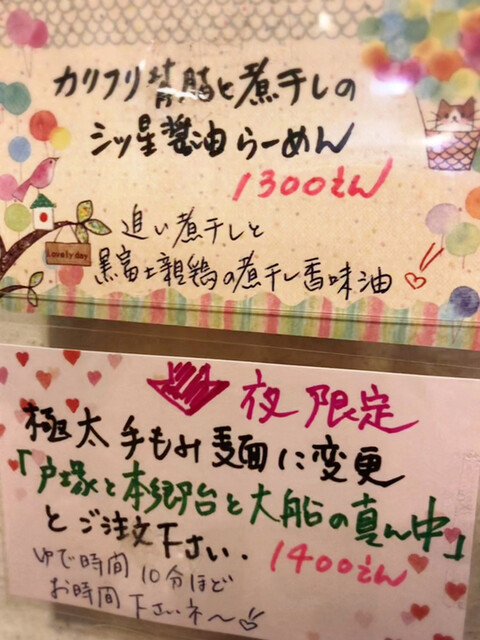 カリフリ背脂と煮干しの
シッ星醤油らーめん
1300えん
追い煮干しと
黒富士親鶏の煮干し香味油
Lovely day
夜限定
極太手もみ麺に変更
「戸塚と本郷台と大船の真ん中」
とご注文下さい.
1400えん
ゆで時間10分ほど
お時間下さいネ〜